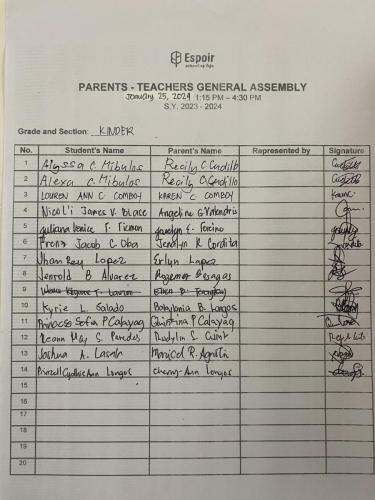 Espoir
school of life
PARENTS - TEACHERS GENERAL ASSEMBLY
January 25, 2024 1:15 PM – 4:30 PM
S.Y. 2023 - 2024
Grade and Section: KINDER
No. Student's Name Parent's Name Represented by Signature
1 Alyssa C. Mibulos Recily C. Cudillo
2 Alexa C. Mibulos Recily C. Cudillo
3 LOUREN ANN C. COMBOY KAREN C. COMBOY
4 Nicol'i James V. Blace Angeline G Valandria
5 Juliana Venice T. Ticman Jocelyn E.
6 Jacob C. Oba Jenalyn R. Cordita
7 Jhan Rey Lopez Erlyn Lopez
8 Jerrold B Alvarez Rogemar Besagas
9
10 Kyrie L. Salado Babylonia B. Longos
11 Princess Sofia P Calayag Quintina P Calayag
12 Leann May S. Paredes Rudylin S.
13 Joshua A. Lasah Maricel R. Agustin
14 Prinzell Cydhie Ann Longos Cherry-Ann Longos
15
16
17
18
19
20